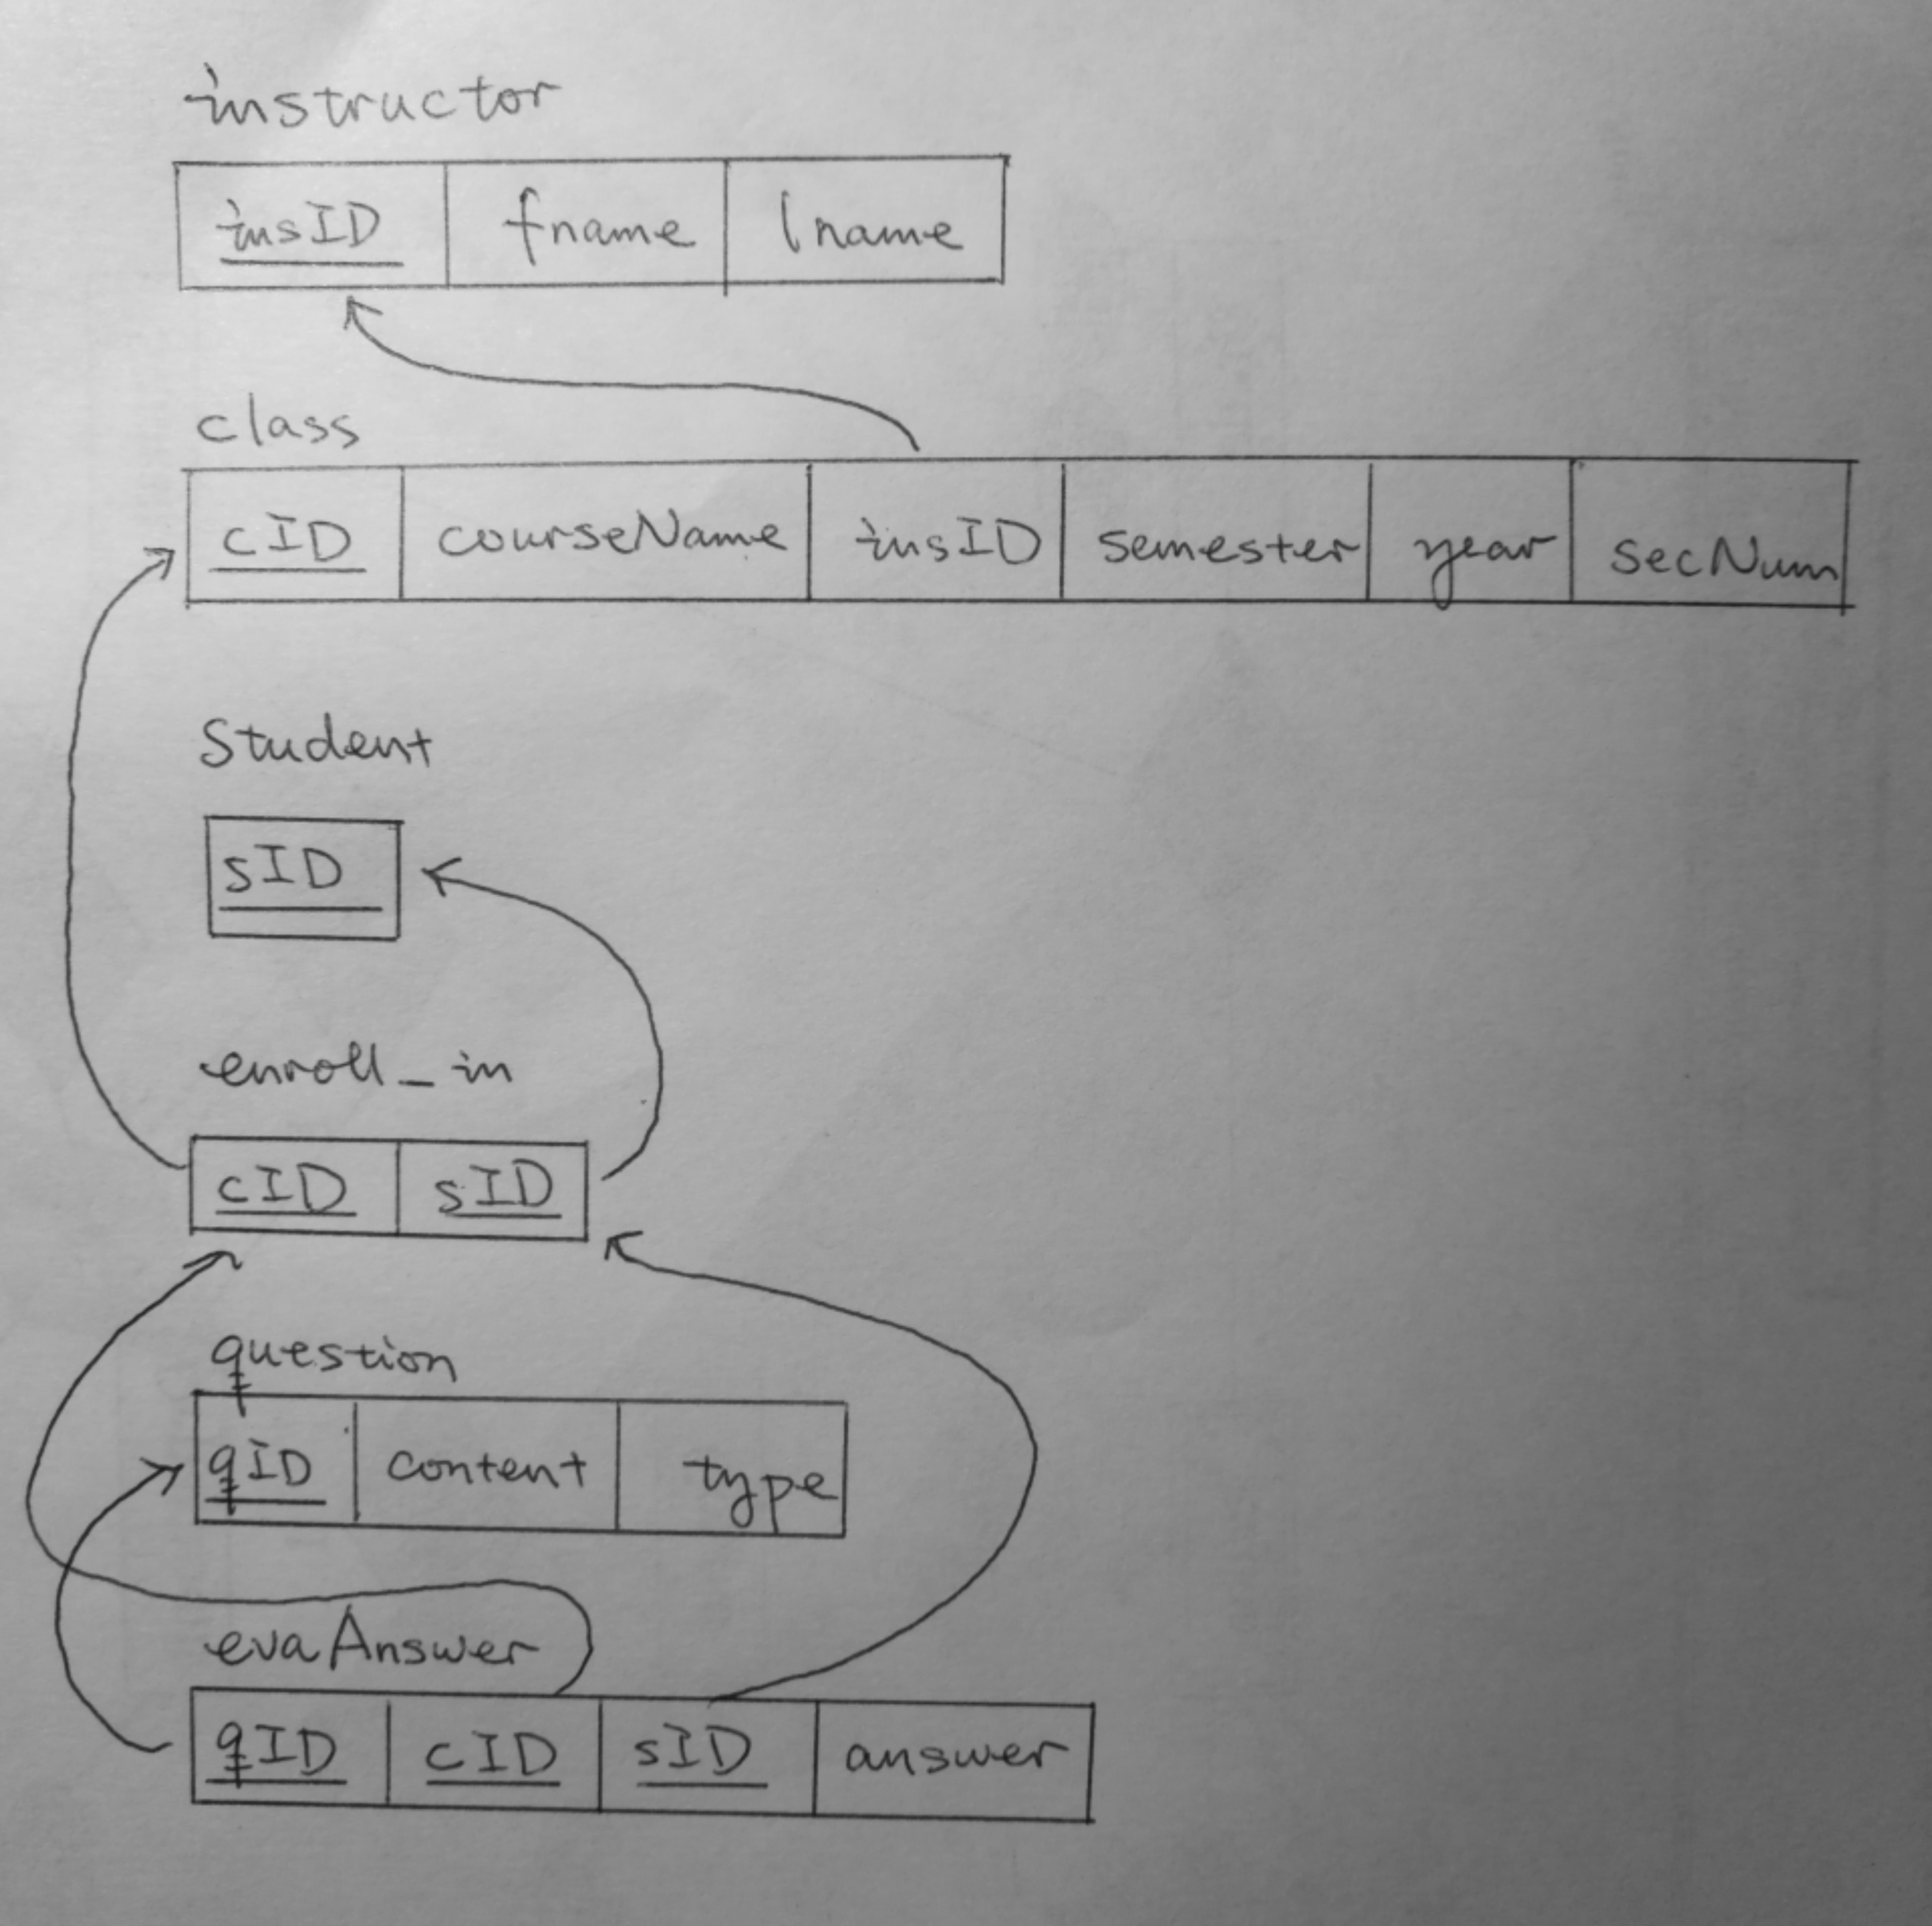 instructor
insID fname lname
class
cID courseName insID semester year secNum
Student
sID
enroll_in
cID sID
question
qID content type
evaAnswer
qID cID sID answer